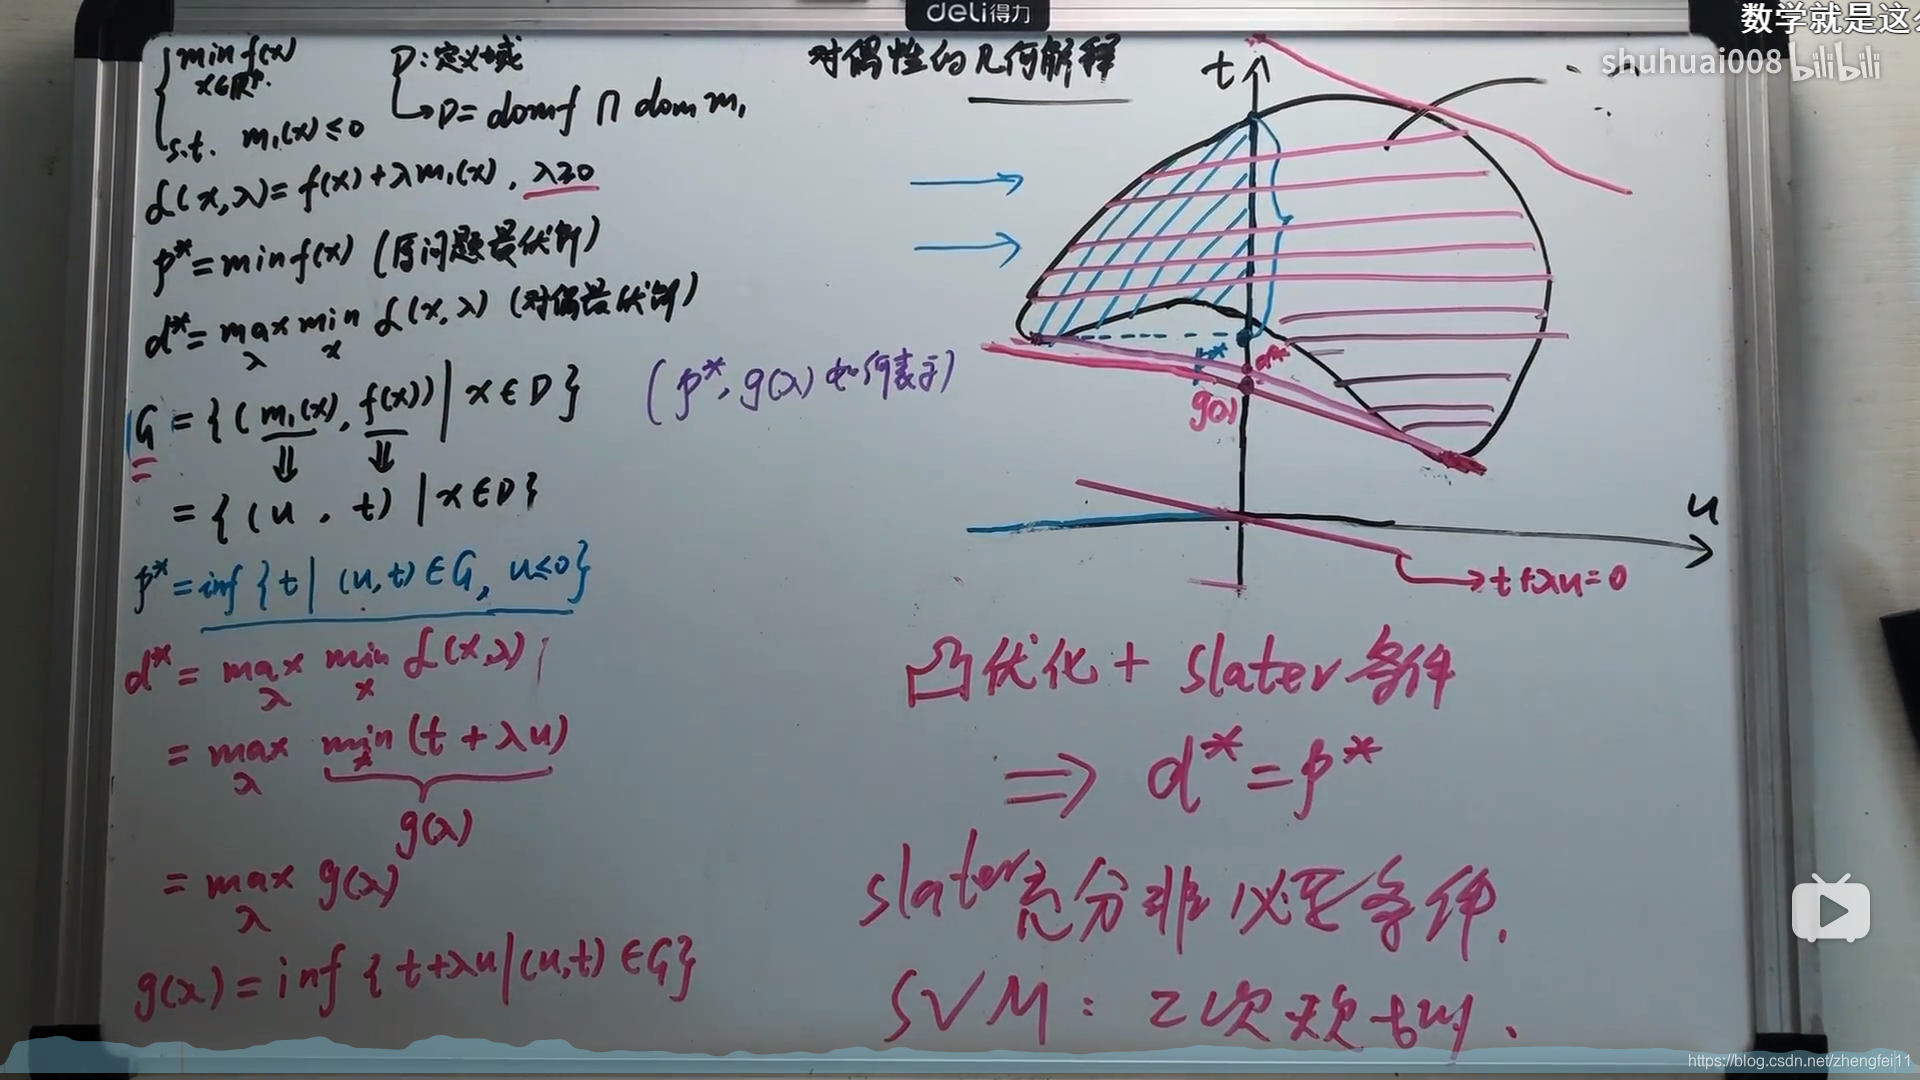 deli得力
数学就是这么
shuhuai008 bilibili
min f(x)
x∈ℝᵖ
s.t. m₁(x)≤0
D:定义域
→D= domf ∩ dom m₁
对偶性的几何解释
L(x,λ)= f(x)+λm₁(x), λ≥0
p*=minf(x) (原问题最优解)
d*= max min L(x,λ) (对偶最优解)
λ x
G = {(m₁(x), f(x)) | x∈D}
⇓ ⇓
(p*, g(λ) 如何表示)
= {(u, t) | x∈D}
p*=inf {t| (u,t)∈G, u≤0}
d* = max min L(x,λ)
λ x
= max min (t+λu)
λ x
g(λ)
= max g(λ)
λ
g(λ)=inf {t+λu|(u,t)∈G}
t
p* d*
g(λ)
u
→t+λu=0
凸优化+ slater条件
⇒ d*=p*
slater充分非必要条件.
SVM: 二次规划.
https://blog.csdn.net/zhengfei11